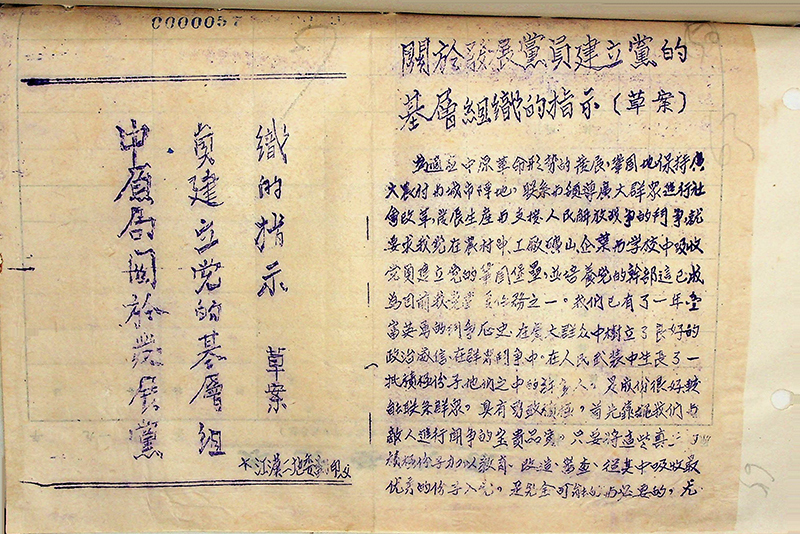 0000057
中原局關於發展黨
員建立党的基層組
織的指示 草案
江漢二地委 印
關於發展黨員建立黨的
基層組織的指示（草案）
為適應中原革命形勢的發展，鞏固地保持廣
大農村与城市陣地，联系与領導廣大群眾進行社
會改革，發展生產与支援人民解放战争的鬥争，就
要求我党在農村中、工廠、礦山、企業与学校中吸收
党員建立党的鞏固堡壘，並培養党的幹部這已成
為目前我党 任務之一。我們已有了一年
富 的鬥争历史，在廣大群众中樹立了良好的
政治威信，在群众鬥争中，在人民武装中生長了一
批積極份子他們之中的許多人，是成份很好較
能联系群眾，具有 積極，首先靠擺我們与
敵人進行鬥争的宝貴品質。只要將這些真正
積極份子加以教育、改造、 查，從其中吸收最
優秀的份子入党，是完全可能的与必要的。尤
59